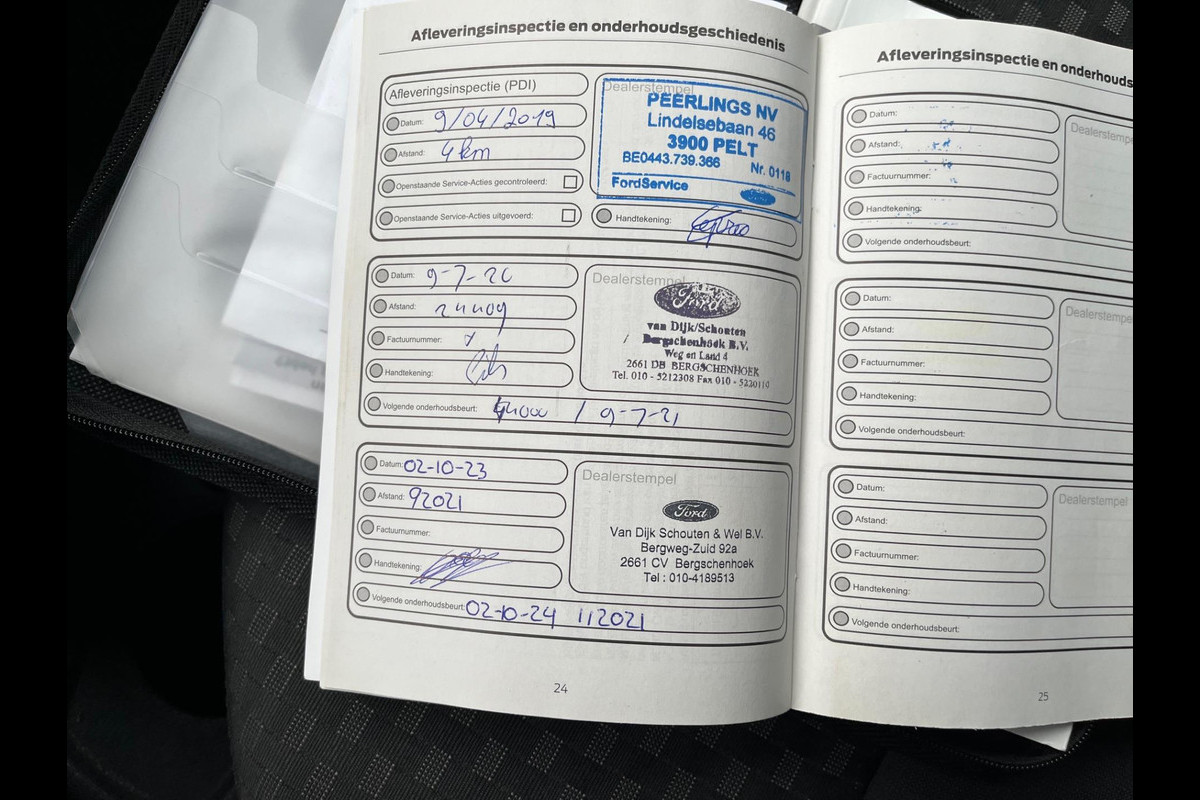 Afleveringsinspectie en onderhoudsgeschiedenis
Afleveringsinspectie (PDI)
Datum: 9/04/2019
Afstand: 4 km
Openstaande Service-Acties gecontroleerd:
Openstaande Service-Acties uitgevoerd:
Dealerstempel
PEERLINGS NV
Lindelsebaan 46
3900 PELT
BE0443.739.366 Nr. 0118
FordService
Handtekening:
Datum: 9-7-20
Afstand: 24409
Factuurnummer:
Handtekening:
Dealerstempel
Ford
van Dijk/Schouten
Bergschenhoek B.V.
Weg en Land 4
2661 DB BERGSCHENHOEK
Tel. 010 - 5212308 Fax 010 - 5220110
Volgende onderhoudsbeurt: 44000 / 9-7-21
Datum: 02-10-23
Afstand: 92021
Factuurnummer:
Handtekening:
Dealerstempel
Ford
Van Dijk Schouten & Wel B.V.
Bergweg-Zuid 92a
2661 CV Bergschenhoek
Tel : 010-4189513
Volgende onderhoudsbeurt: 02-10-24 112021
24
Afleveringsinspectie en onderhouds
Datum:
Afstand:
Factuurnummer:
Handtekening:
Dealerstempe
Volgende onderhoudsbeurt:
Datum:
Afstand:
Factuurnummer:
Handtekening:
Dealerstempe
Volgende onderhoudsbeurt:
Datum:
Afstand:
Factuurnummer:
Handtekening:
Dealerstempel
Volgende onderhoudsbeurt:
25